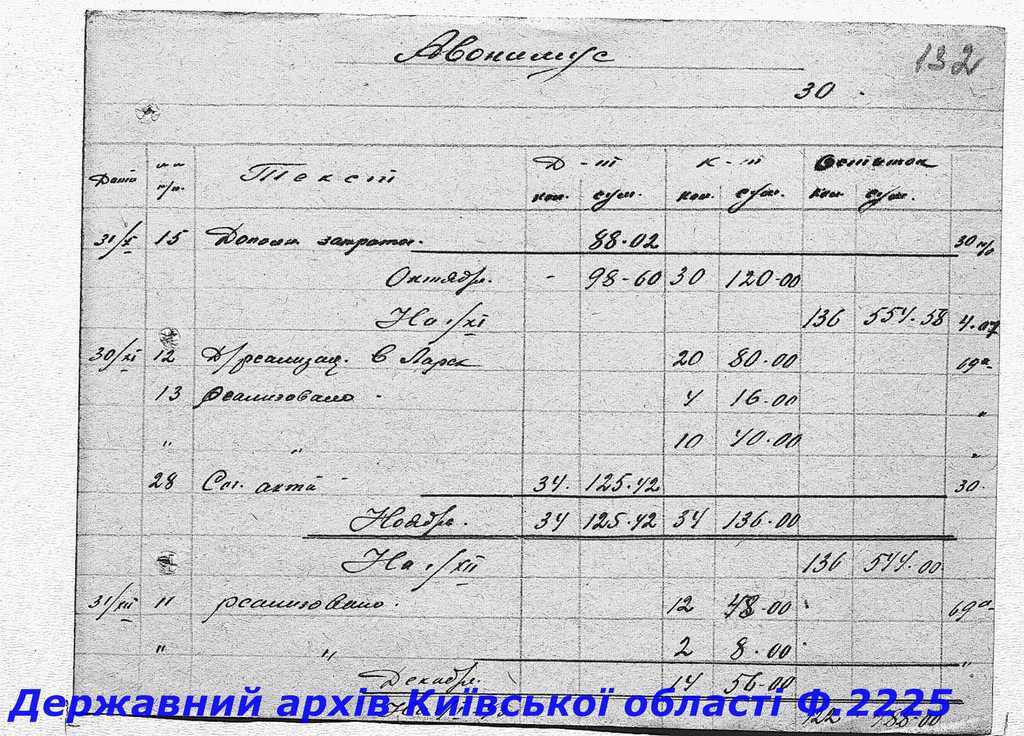 Авонимус 132
30
Дата п/п. Текст Д-т К-т Остаток
кол. сум. кол. сум. кол. сум.
31/X 15 Дополн. затраты. 88.02 30 п/о
Октябрь. - 98-60 30 120-00
На 1/XI 136 554.58 4.07
30/XI 12 Д/реализац. в Ларек 20 80-00 69а-
13 Реализовано - 4 16-00 "
" " 10 40-00 "
28 Сог. акта 34. 125.42 30.
Ноябрь. 34 125.42 34 136-00
На 1/XII 136 544.00
31/XII 11 реализовано. 12 48-00 69а-
" " 2 8.00 "
Декабрь. 14 56-00
122 488-00
Державний архів Київської області Ф.2225